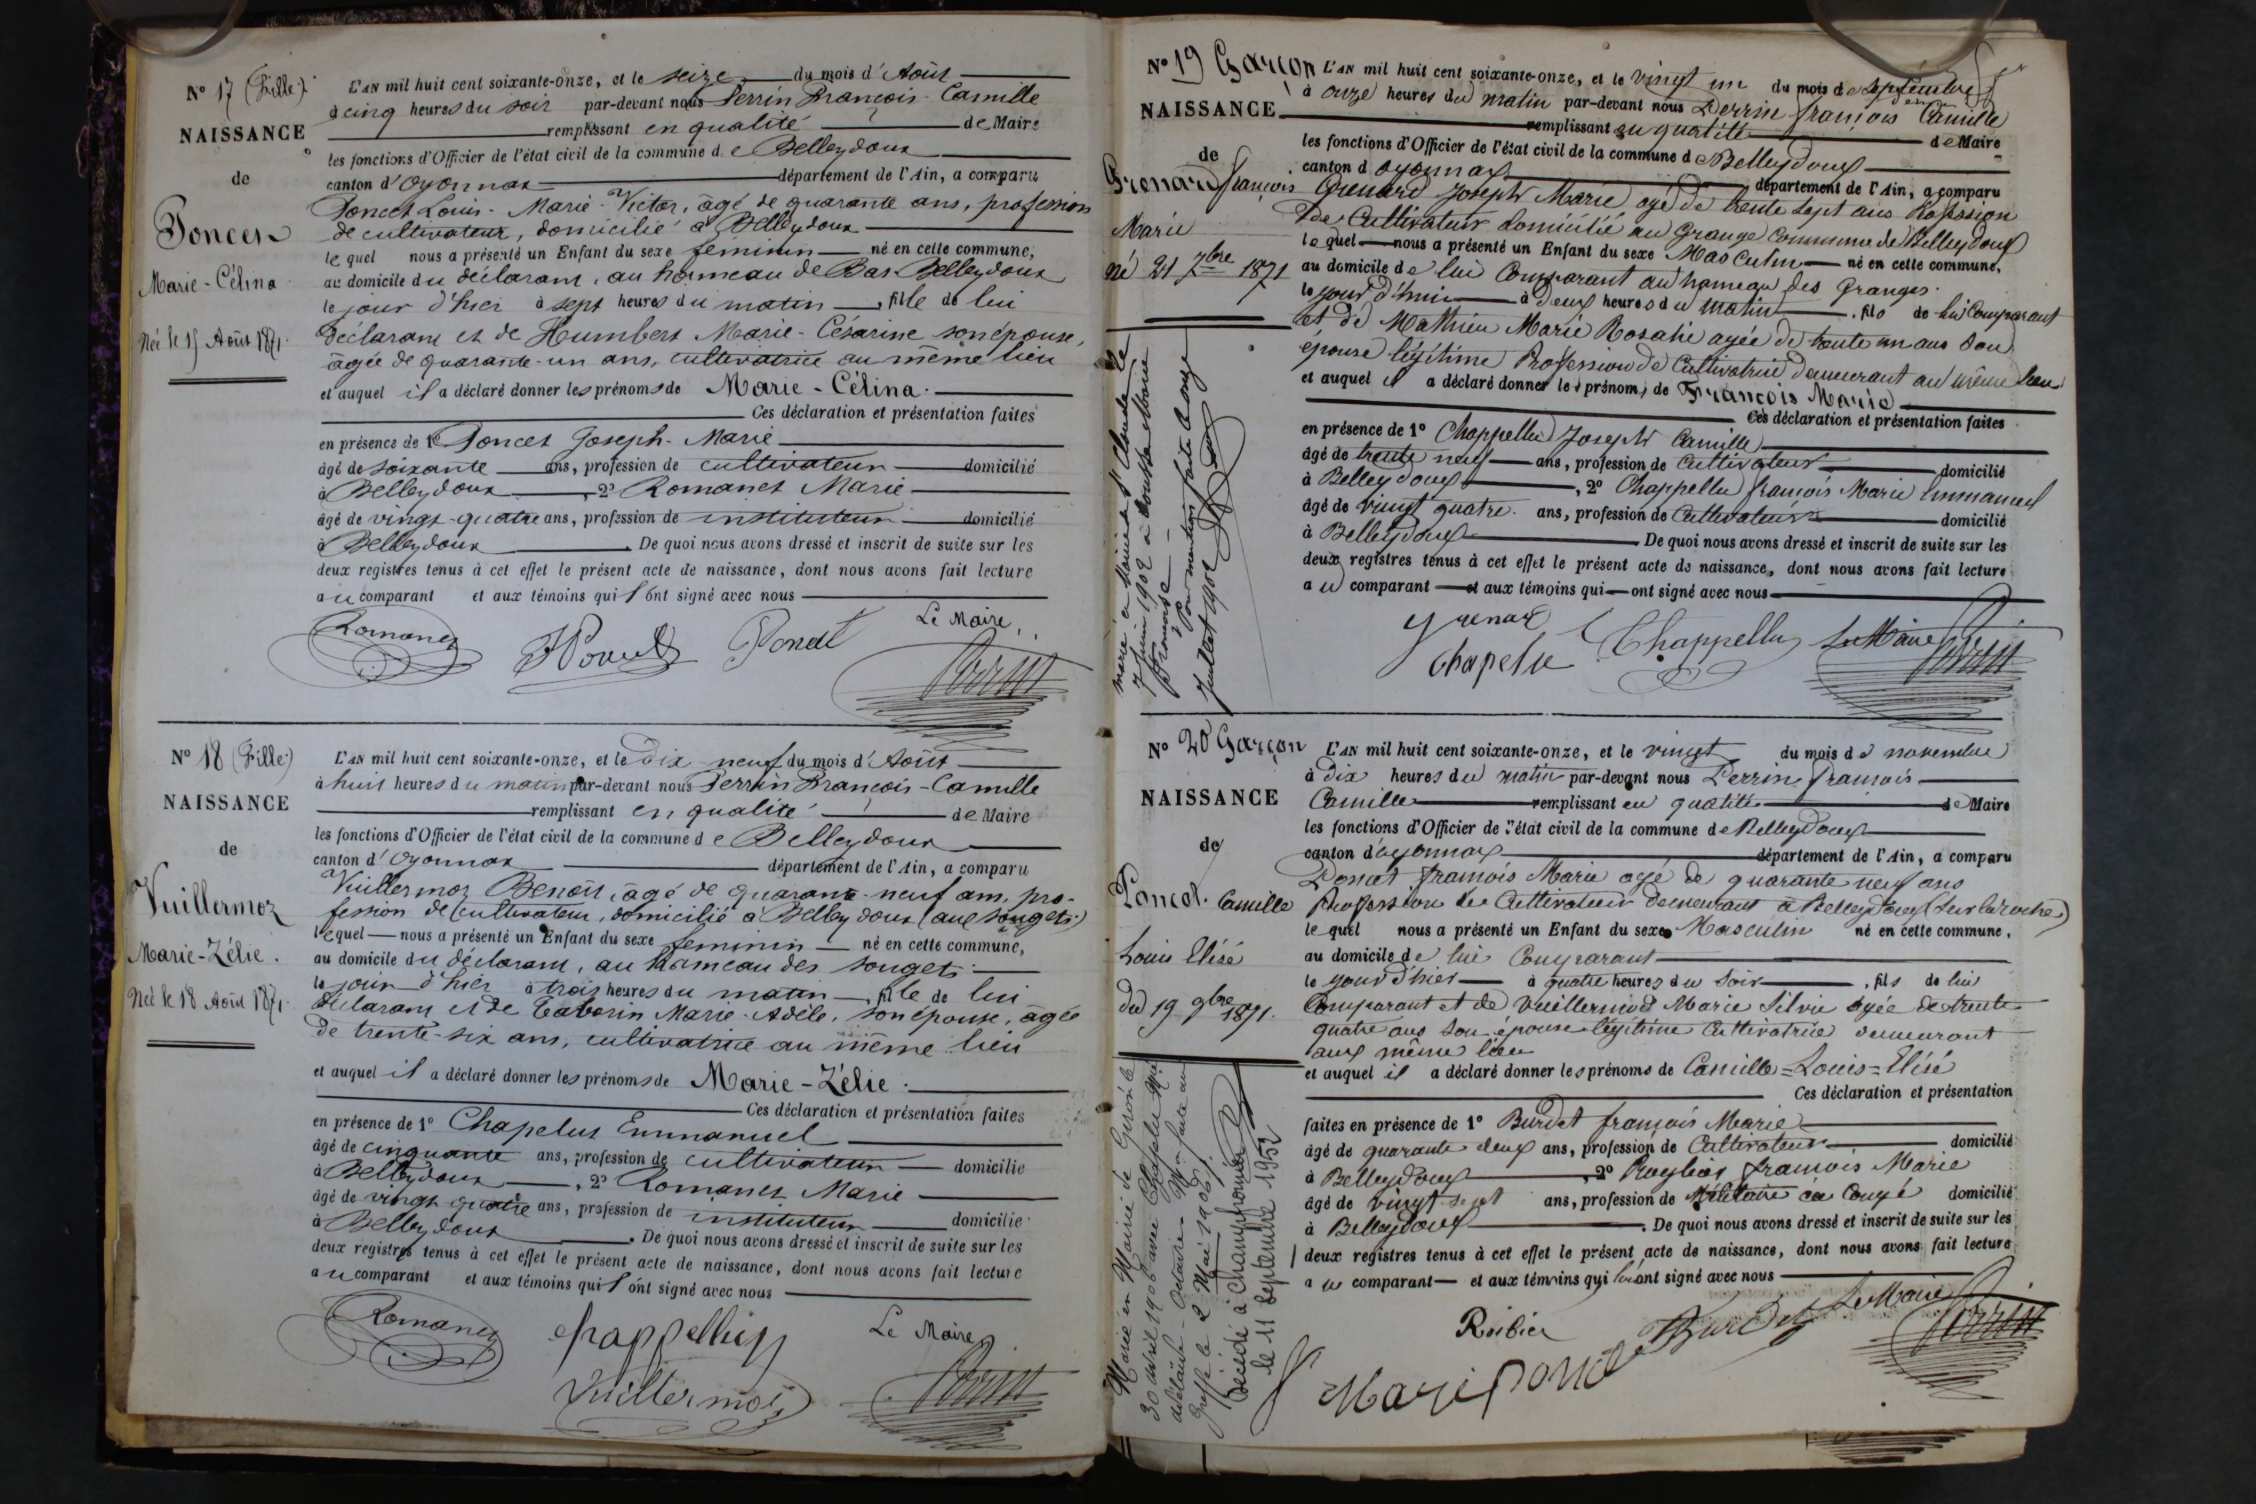 N° 17 (Fille)
NAISSANCE
de
Poncet
Marie-Célina
Née le 15 Août 1871
L'AN mil huit cent soixante-onze, et le seize du mois d'Août
à cinq heures du soir par-devant nous Perrin François-Camille
remplissant en qualité de Maire
les fonctions d'Officier de l'état civil de la commune de Belleydoux
canton d'Oyonnax département de l'Ain, a comparu
Poncet Louis-Marie-Victor, âgé de quarante ans, profession
de cultivateur, domicilié à Belleydoux
lequel nous a présenté un Enfant du sexe féminin né en cette commune,
au domicile du déclarant, au hameau de Bas Belleydoux
le jour d'hier à sept heures du matin, fille de lui
déclarant et de Humbert Marie-Césarine son épouse,
âgée de quarante-un ans, cultivatrice au même lieu
et auquel il a déclaré donner les prénoms de Marie-Célina.
Ces déclaration et présentation faites
en présence de 1° Poncet Joseph-Marie
âgé de soixante ans, profession de cultivateur domicilié
à Belleydoux, 2° Romanet Marie
âgé de vingt-quatre ans, profession de instituteur domicilié
à Belleydoux. De quoi nous avons dressé et inscrit de suite sur les
deux registres tenus à cet effet le présent acte de naissance, dont nous avons fait lecture
au comparant et aux témoins qui l'ont signé avec nous
Le Maire,
Romanet Poncet Poncet
Perrin
N° 18 (Fille)
NAISSANCE
de
Vuillermoz
Marie-Zélie.
Née le 18 Août 1871.
L'AN mil huit cent soixante-onze, et le dix neuf du mois d'Août
à huit heures du matin par-devant nous Perrin François-Camille
remplissant en qualité de Maire
les fonctions d'Officier de l'état civil de la commune de Belleydoux
canton d'Oyonnax département de l'Ain, a comparu
Vuillermoz Benoît, âgé de quarante-neuf ans, pro-
fession de cultivateur, domicilié à Belleydoux (aux Sougets)
lequel nous a présenté un Enfant du sexe féminin né en cette commune,
au domicile du déclarant, au hameau des Sougets
le jour d'hier à trois heures du matin, fille de lui
déclarant et de Taborin Marie-Adèle, son épouse, âgée
de trente-six ans, cultivatrice au même lieu
et auquel il a déclaré donner les prénoms de Marie-Zélie.
Ces déclaration et présentation faites
en présence de 1° Chapelus Emmanuel
âgé de cinquante ans, profession de cultivateur domicilié
à Belleydoux, 2° Romanet Marie
âgé de vingt quatre ans, profession de instituteur domicilié
à Belleydoux. De quoi nous avons dressé et inscrit de suite sur les
deux registres tenus à cet effet le présent acte de naissance, dont nous avons fait lecture
au comparant et aux témoins qui l'ont signé avec nous
Romanet chappelluy Le Maire
Vuillermoz Perrin
N° 19 Garçon
NAISSANCE
de
Grenard François
Marie
né 21 7bre 1871
marié à la mairie de St Claude le
7 juin 1902 à
pour mention faite le onze
Juillet 1902
L'AN mil huit cent soixante-onze, et le vingt un du mois de septembre
à onze heures du matin par-devant nous Perrin françois Camille
remplissant en qualité de Maire
les fonctions d'Officier de l'état civil de la commune de Belleydoux
canton d'oyonnax département de l'Ain, a comparu
Grenard Joseph Marie agé de trente sept ans Profession
de Cultivateur domicilié au Grange Commune de Belleydoux
lequel nous a présenté un Enfant du sexe Masculin né en cette commune,
au domicile de lui Comparant au hameau des Granges.
le jour d'hui à deux heures du matin, fils de lui Comparant
et de Mathieu Marie Rosalie agée de trente un ans son
épouse légitime Profession de Cultivatrice demeurant au même lieu
et auquel il a déclaré donner les prénoms de François Marie
Ces déclaration et présentation faites
en présence de 1° Chappellu Joseph Camille
âgé de trente neuf ans, profession de Cultivateur domicilié
à Belleydoux, 2° Chappellu françois Marie Emmanuel
âgé de vingt quatre ans, profession de Cultivateur domicilié
à Belleydoux De quoi nous avons dressé et inscrit de suite sur les
deux registres tenus à cet effet le présent acte de naissance, dont nous avons fait lecture
au comparant et aux témoins qui ont signé avec nous
Grenard Chappelluy Le Maire
Chapelu Perrin
N° 20 Garçon
NAISSANCE
de
Poncet Camille
Louis Elisé
du 19 9bre 1871.
Marié en Mairie de le
30 avril 1906 avec Chapelu Marie
Adélaïde - faite au
Greffe le 2 Mai 1906.
Décédé à Champfromier
le 11 septembre 1952
L'AN mil huit cent soixante-onze, et le vingt du mois de novembre
à dix heures du matin par-devant nous Perrin françois
Camille remplissant en qualité de Maire
les fonctions d'Officier de l'état civil de la commune de Belleydoux
canton d'oyonnax département de l'Ain, a comparu
Poncet françois Marie agé de quarante neuf ans
Profession de Cultivateur demeurant à Belleydoux (sur la roche)
lequel nous a présenté un Enfant du sexe Masculin né en cette commune,
au domicile de lui Comparant
le jour d'hier à quatre heures du Soir, fils de lui
Comparant et de Vuillermod Marie Silvie agée de trente
quatre ans son épouse légitime Cultivatrice demeurant
aux même lieu
et auquel il a déclaré donner les prénoms de Camille=Louis=Elisé
Ces déclaration et présentation
faites en présence de 1° Burdet françois Marie
âgé de quarante deux ans, profession de Cultivateur domicilié
à Belleydoux, 2° françois Marie
âgé de vingt sept ans, profession de Militaire en Congé domicilié
à Belleydoux. De quoi nous avons dressé et inscrit de suite sur les
deux registres tenus à cet effet le présent acte de naissance, dont nous avons fait lecture
au comparant et aux témoins qui ont signé avec nous
Roibier Burdet Le Maire
Marie ponce Perrin